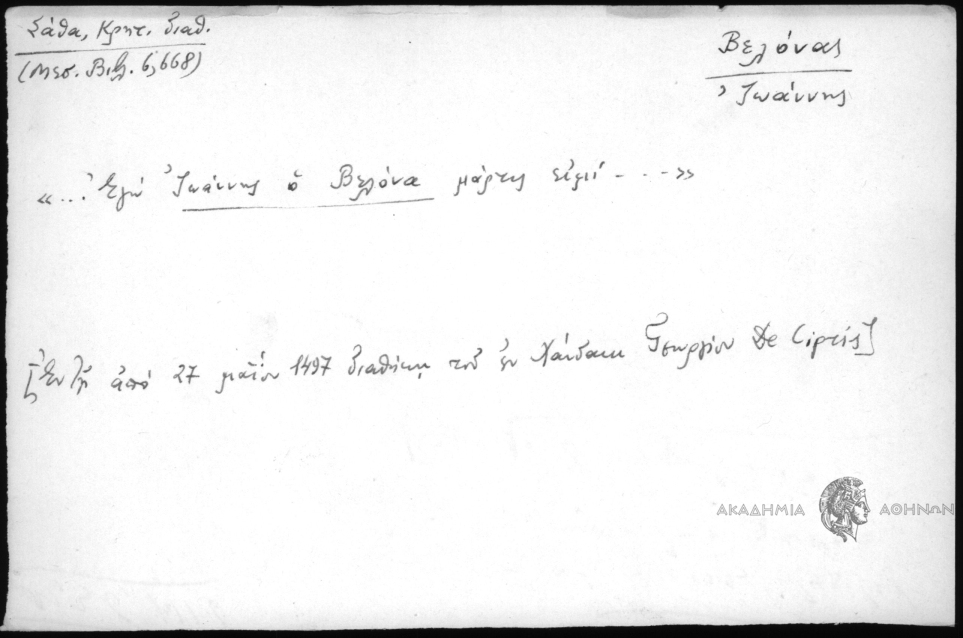 Σάθα, Κρητ. διαθ.
(Μεσ. Βιβλ. 6, 668)
Βελόνας
Ἰωάννης
«... Ἐγὼ Ἰωάννης ὁ Βελόνα μάρτυς εἰμί - ...»
[Ἐν τῇ ἀπό 27 μαΐου 1497 διαθήκῃ τοῦ ἐν Χάνδακι Γεωργίου De
ἈΚΑΔΗΜΙΑ ΑΘΗΝΩΝ